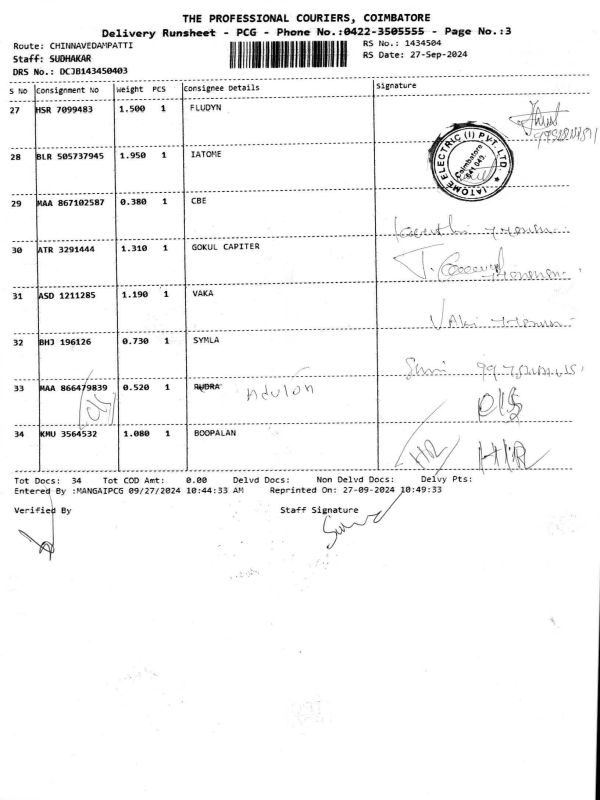 THE PROFESSIONAL COURIERS, COIMBATORE
Delivery Runsheet - PCG - Phone No.:0422-3505555 - Page No.:3
Route: CHINNAVEDAMPATTI RS No.: 1434504
Staff: SUDHAKAR RS Date: 27-Sep-2024
DRS No.: DCJB143450403
S No Consignment No Weight PCS Consignee Details Signature
27 HSR 7099483 1.500 1 FLUDYN
28 BLR 505737945 1.950 1 IATOME
IATOME ELECTRIC (I) PVT. LTD. ★
Coimbatore
641 049.
29 MAA 867102587 0.380 1 CBE
30 ATR 3291444 1.310 1 GOKUL CAPITER
31 ASD 1211285 1.190 1 VAKA
32 BHJ 196126 0.730 1 SYMLA
33 MAA 866479839 0.520 1 RUDRA Adulon
34 KMU 3564532 1.080 1 BOOPALAN HR
Tot Docs: 34 Tot COD Amt: 0.00 Delvd Docs: Non Delvd Docs: Delvy Pts:
Entered By :MANGAIPCG 09/27/2024 10:44:33 AM Reprinted On: 27-09-2024 10:49:33
Verified By Staff Signature